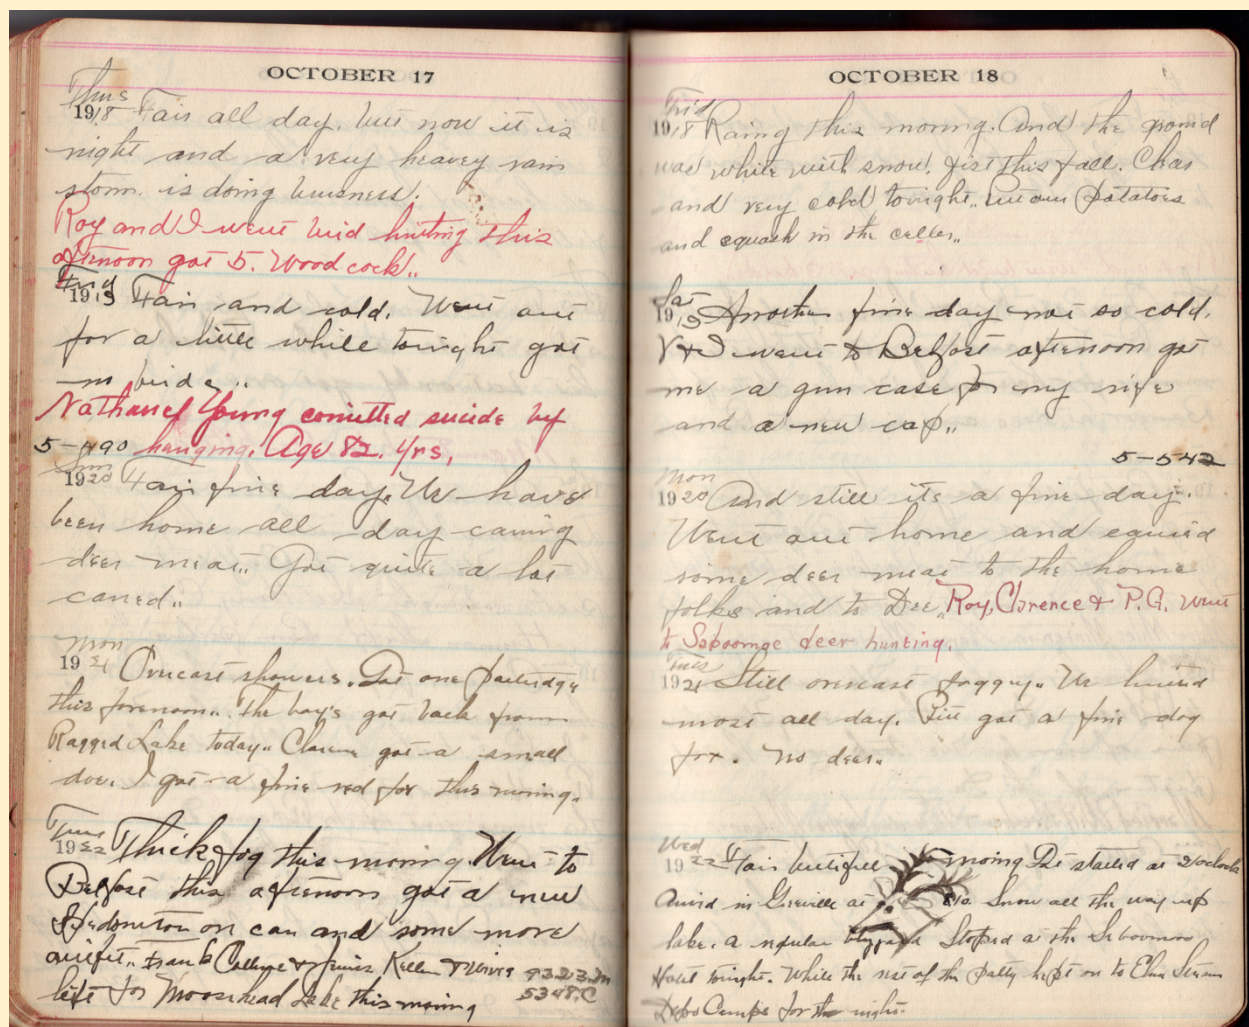 OCTOBER 17
Thurs
1918 Fair all day, but now it is
night and a very heavey rain
storm is doing buisness.
Roy and I went bird hunting this
afternoon got 5. Woodcock..
Frid
1919 Fair and cold. Went out
for a little while tonight got
no birds..
Nathanel Young comitted suicide by
5-490 hanging. Age 82. Yrs,
Sun
1920 Fair fine day. We have
been home all day caning
deer meat.. Got quite a lot
caned..
Mon
1921 Overcast showers. Got one Partridge
this forenoon.. The boy's got back from
Ragged Lake today.. Clarence got a small
doe. I got a fine red fox this morning.
Tues
1922 Thick fog this morning. Went to
Belfast this afternoon got a new
on car and some more
outfit.. Frank & Keller & Wives 9323.M
left for Moosehead Lake this morning 5348.C
OCTOBER 18
Frid
1918 Raing this morning. And the ground
was white with snow. first this fall. Clear
and very cold tonight.. Put our potatoes
and squash in the celler..
Sat
1919 Another fine day not so cold.
V & I went to Belfast afternoon got
me a gun case for my rife
and a new cap..
5-542
Mon
1920 And still its a fine day.
Went out home and carried
some deer meat to the home
folks and to Dee.. Roy, Clarence & P.G. went
to Seboomoe deer hunting.
Tues
1921 Still overcast foggy.. We hunted
most all day. Pitt got a fine dog
fox. No deer..
Wed
1922 Fair butifull morning Got started at 2 oclock
Arived in Greeville at 810. Snow all the way up
lake. a regular blizzard Stoped at the Seboomoo
Hotel tonight. While the rest of the party kept on to Elm Stream
Depo Camps for the night.